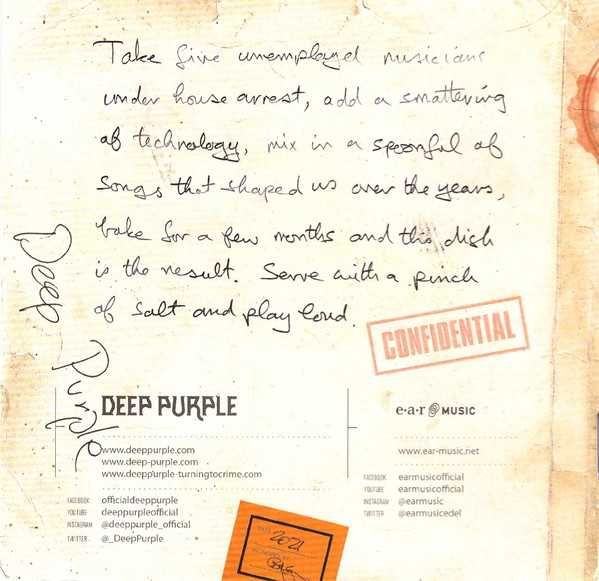 Take five unemployed musicians
under house arrest, add a smattering
of technology, mix in a spoonful of
songs that shaped us over the years,
bake for a few months and this dish
is the result. Serve with a pinch
of salt and play loud.
Deep Purple
CONFIDENTIAL
DEEP PURPLE
www.deeppurple.com
www.deep-purple.com
www.deeppurple-turningtocrime.com
FACEBOOK officialdeeppurple
YOUTUBE deeppurpleofficial
INSTAGRAM @deeppurple_official
TWITTER @_DeepPurple
e·a·r MUSIC
www.ear-music.net
FACEBOOK earmusicofficial
YOUTUBE earmusicofficial
INSTAGRAM @earmusic
TWITTER @earmusicedel
2021